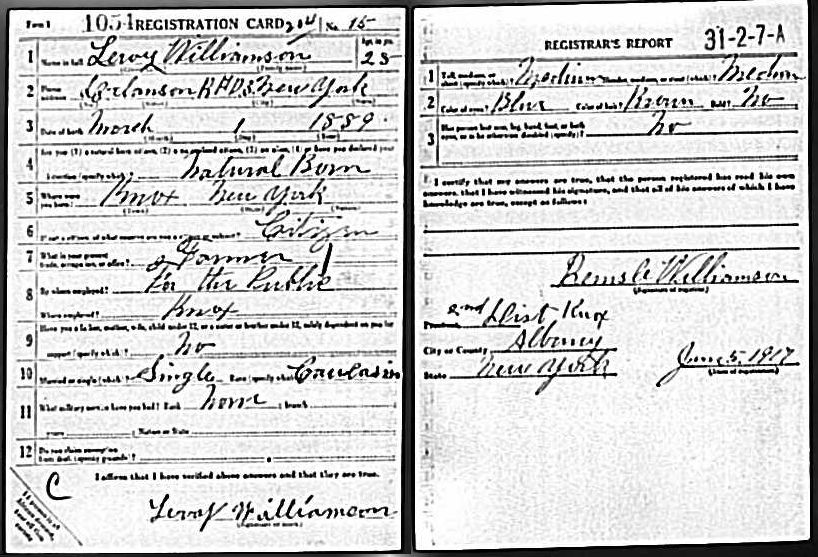 Form 1 1054 REGISTRATION CARD 204 No. 15
1 Name in full Leroy Williamson Age in yrs. 28
2 Home address R F D 3. New York
3 Date of birth March 1 1889
4 Are you (1) a natural born citizen, (2) a naturalized citizen, (3) an alien, (4) or have you declared your
intention (specify which)? Natural Born
5 Where were you born? Knox New York
6 If not a citizen, of what country are you a citizen or subject? Citizen
7 What is your present trade, occupation, or office? Farmer 1
8 By whom employed? For the Public
Where employed? Knox
9 Have you a father, mother, wife, child under 12, or a sister or brother under 12, solely dependent on you for
support (specify which)? No
10 Married or single (which)? Single Race (specify which)? Caucasin
11 What military service have you had? Rank none ; branch
years ; Nation or State
12 Do you claim exemption from draft (specify grounds)?
I affirm that I have verified above answers and that they are true.
C
Leroy Williamson
(Signature or mark)
REGISTRAR'S REPORT 31-2-7-A
1 Tall, medium, or short (specify which)? Medium Slender, medium, or stout (which)? Medium
2 Color of eyes? Blue Color of hair? Brown Bald? No
3 Has person lost arm, leg, hand, foot, or both eyes, or is he otherwise disabled (specify)? No
I certify that my answers are true, that the person registered has read his own
answers, that I have witnessed his signature, and that all of his answers of which I have
knowledge are true, except as follows:
Williamson
(Signature of registrar)
Precinct 2nd Dist Knox
City or County Albany
State New York June 5. 1917
(Date of registration)